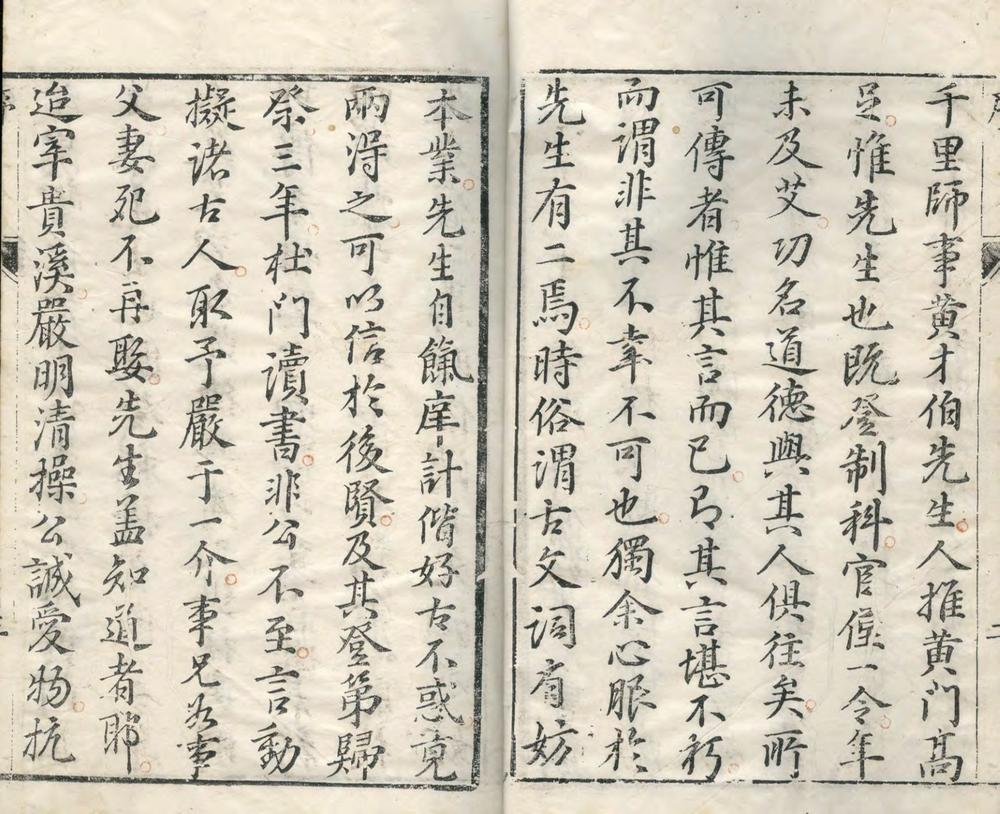 千里師事黄才伯先生人推黄門高
足惟先生也既登制科官僅一令年
未及艾功名道德與其人俱往矣所
可傳者惟其言而已乃其言堪不朽
而謂非其不幸不可也獨余心服於
先生有二焉時俗謂古文詞有妨
本業先生自餼庠計偕好古不惑竟
兩得之可以信於後賢及其登第歸
祭三年杜門讀書非公不至言動
擬諸古人取予嚴于一介事兄若事
父妻死不再娶先生盖知道者耶
迨宰貴溪嚴明清操公誠愛物抗